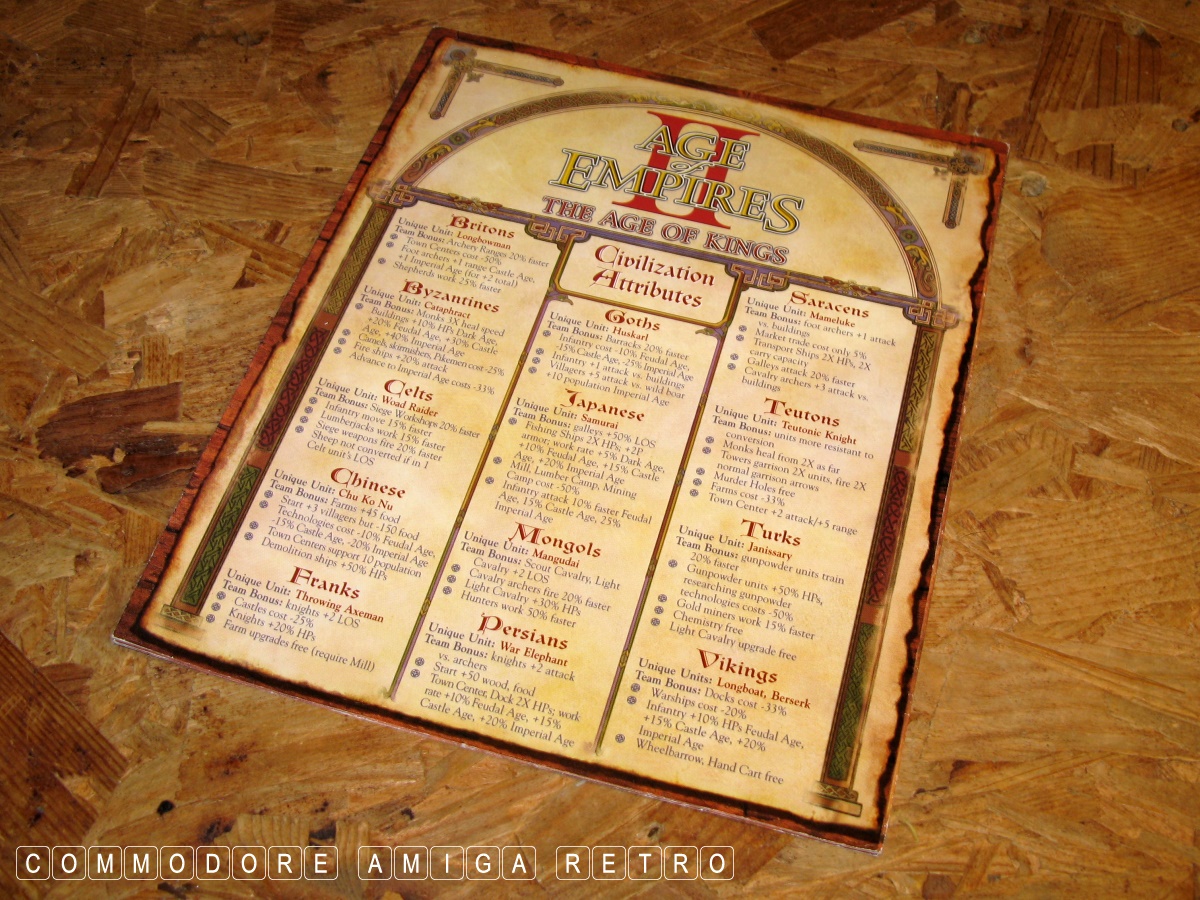 AGE
of
EMPIRES
II
THE AGE OF KINGS
Civilization
Attributes
Britons
Unique Unit: Longbowman
Team Bonus: Archery Ranges 20% faster
Town Centers cost -50%
Foot archers +1 range Castle Age,
+1 Imperial Age (for +2 total)
Shepherds work 25% faster
Byzantines
Unique Unit: Cataphract
Team Bonus: Monks 3X heal speed
Buildings +10% HPs Dark Age,
+20% Feudal Age, +30% Castle
Age, +40% Imperial Age
Camels, skirmishers, Pikemen cost -25%
Fire ships +20% attack
Advance to Imperial Age costs -33%
Celts
Unique Unit: Woad Raider
Team Bonus: Siege Workshops 20% faster
Infantry move 15% faster
Lumberjacks work 15% faster
Siege weapons fire 20% faster
Sheep not converted if in 1
Celt unit's LOS
Chinese
Unique Unit: Chu Ko Nu
Team Bonus: Farms +45 food
Start +3 villagers but -150 food
Technologies cost -10% Feudal Age,
-15% Castle Age, -20% Imperial Age
Town Centers support 10 population
Demolition ships +50% HPs
Franks
Unique Unit: Throwing Axeman
Team Bonus: knights +2 LOS
Castles cost -25%
Knights +20% HPs
Farm upgrades free (require Mill)
Goths
Unique Unit: Huskarl
Team Bonus: Barracks 20% faster
Infantry cost -10% Feudal Age,
-15% Castle Age, -25% Imperial Age
Infantry +1 attack vs. buildings
Villagers +5 attack vs. wild boar
+10 population Imperial Age
Japanese
Unique Unit: Samurai
Team Bonus: galleys +50% LOS
Fishing Ships 2X HPs; +2P
armor; work rate +5% Dark Age,
+10% Feudal Age, +15% Castle
Age, +20% Imperial Age
Mill, Lumber Camp, Mining
Camp cost -50%
Infantry attack 10% faster Feudal
Age, 15% Castle Age, 25%
Imperial Age
Mongols
Unique Unit: Mangudai
Team Bonus: Scout Cavalry, Light
Cavalry +2 LOS
Cavalry archers fire 20% faster
Light Cavalry +30% HPs
Hunters work 50% faster
Persians
Unique Unit: War Elephant
Team Bonus: knights +2 attack
vs. archers
Start +50 wood, food
Town Center, Dock 2X HPs; work
rate +10% Feudal Age, +15%
Castle Age, +20% Imperial Age
Saracens
Unique Unit: Mameluke
Team Bonus: foot archers +1 attack
vs. buildings
Market trade cost only 5%
Transport Ships 2X HPs, 2X
carry capacity
Galleys attack 20% faster
Cavalry archers +3 attack vs.
buildings
Teutons
Unique Unit: Teutonic Knight
Team Bonus: units more resistant to
conversion
Monks heal from 2X as far
Towers garrison 2X units, fire 2X
normal garrison arrows
Murder Holes free
Farms cost -33%
Town Center +2 attack/+5 range
Turks
Unique Unit: Janissary
Team Bonus: gunpowder units train
20% faster
Gunpowder units +50% HPs;
researching gunpowder
technologies costs -50%
Gold miners work 15% faster
Chemistry free
Light Cavalry upgrade free
Vikings
Unique Units: Longboat, Berserk
Team Bonus: Docks cost -33%
Warships cost -20%
Infantry +10% HPs Feudal Age,
+15% Castle Age, +20%
Imperial Age
Wheelbarrow, Hand Cart free
COMMODORE AMIGA RETRO